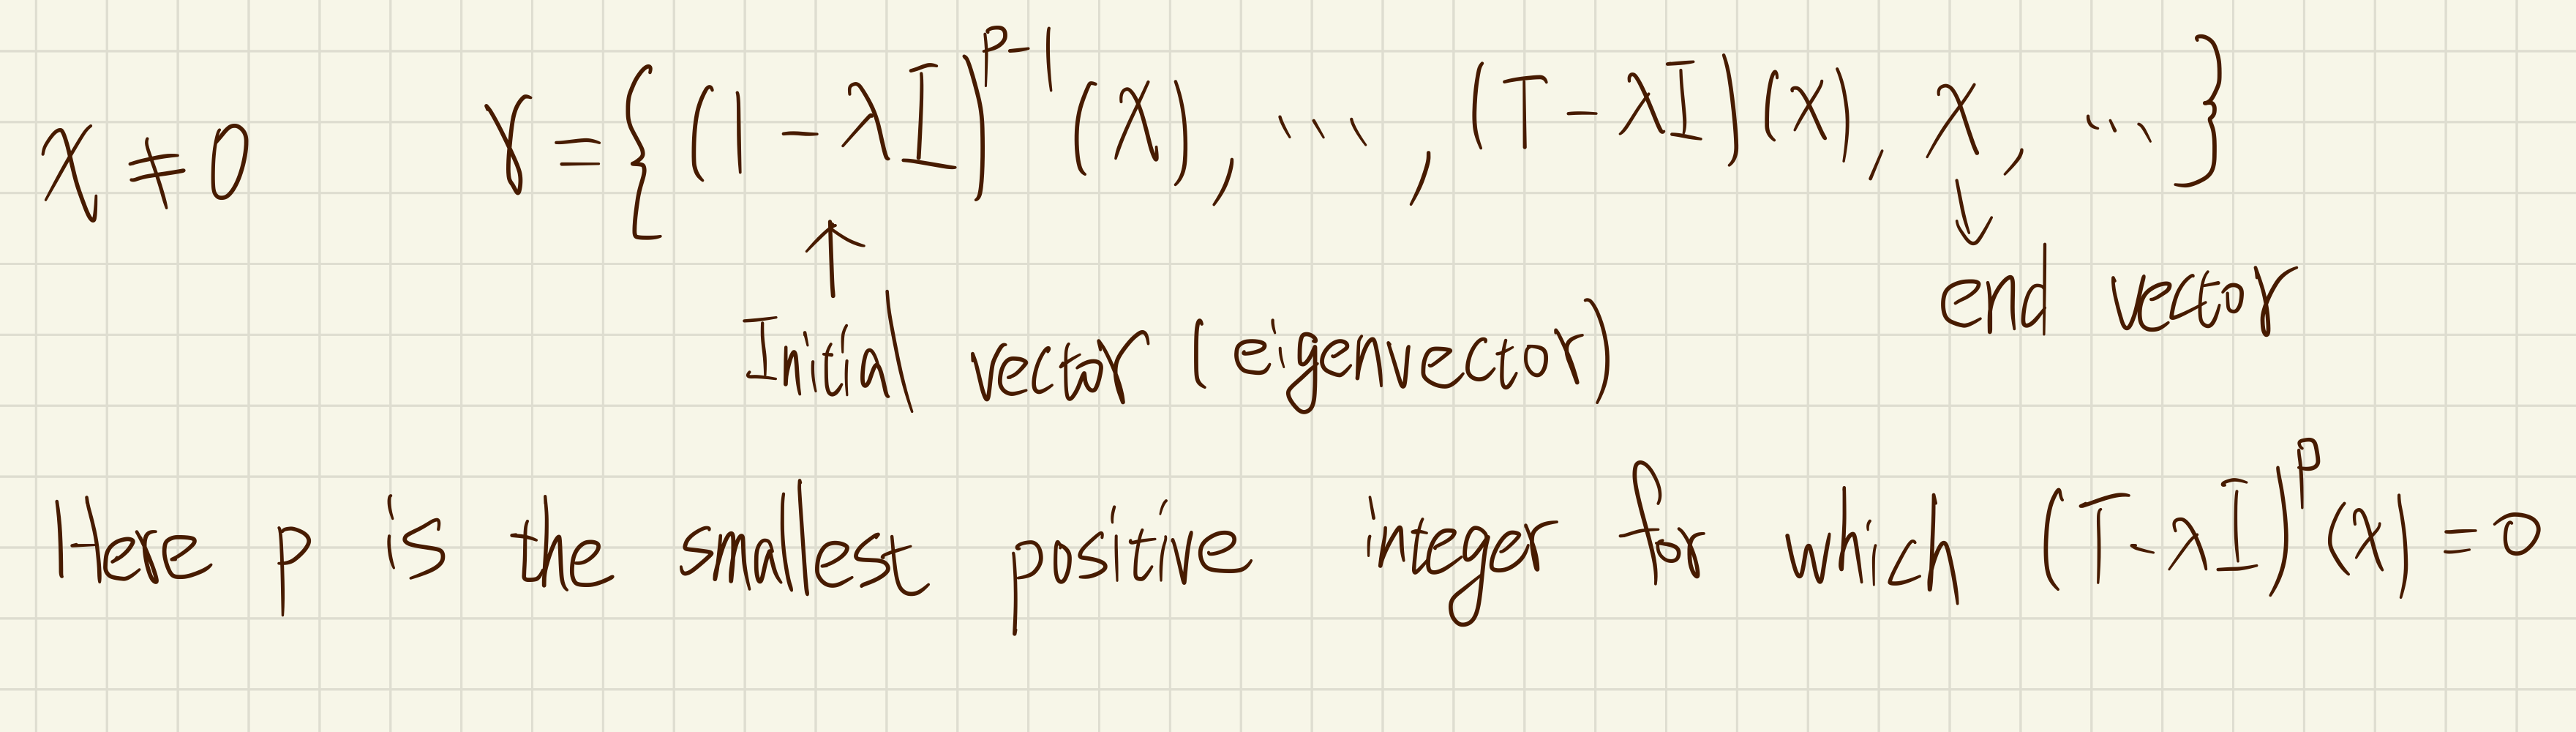 x ≠ 0 γ = { (1 - λI)^{p-1}(x), ..., (T - λI)(x), x, ... }
↑ ↓
end vector
Initial vector (eigenvector)
Here p is the smallest positive integer for which (T - λI)^p (x) = 0